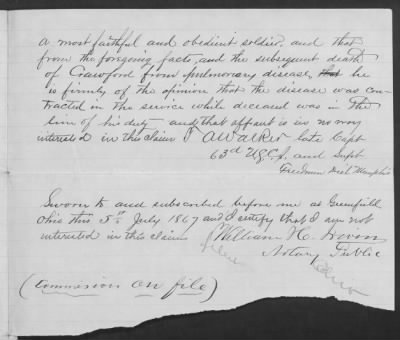 a most faithful and obedient soldier, and that
from the forgoing facts, and the subsequent death
of Crawford from pulmonary disease, that he
is firmly of the opinion that the disease was con
tracted in the service while deceased was in the
line of his duty - and that affiant is in no way
interested in this claim A Walker late Capt
63d U.S.C.I. and Supt
Freedmen Dist Memphis
Sworn to and subscribed before me at Greenfield
Ohio this 5th July 1867 and I certify that I am not
interested in this claim
William H. Irwin
Notary Public
(Commission on file)